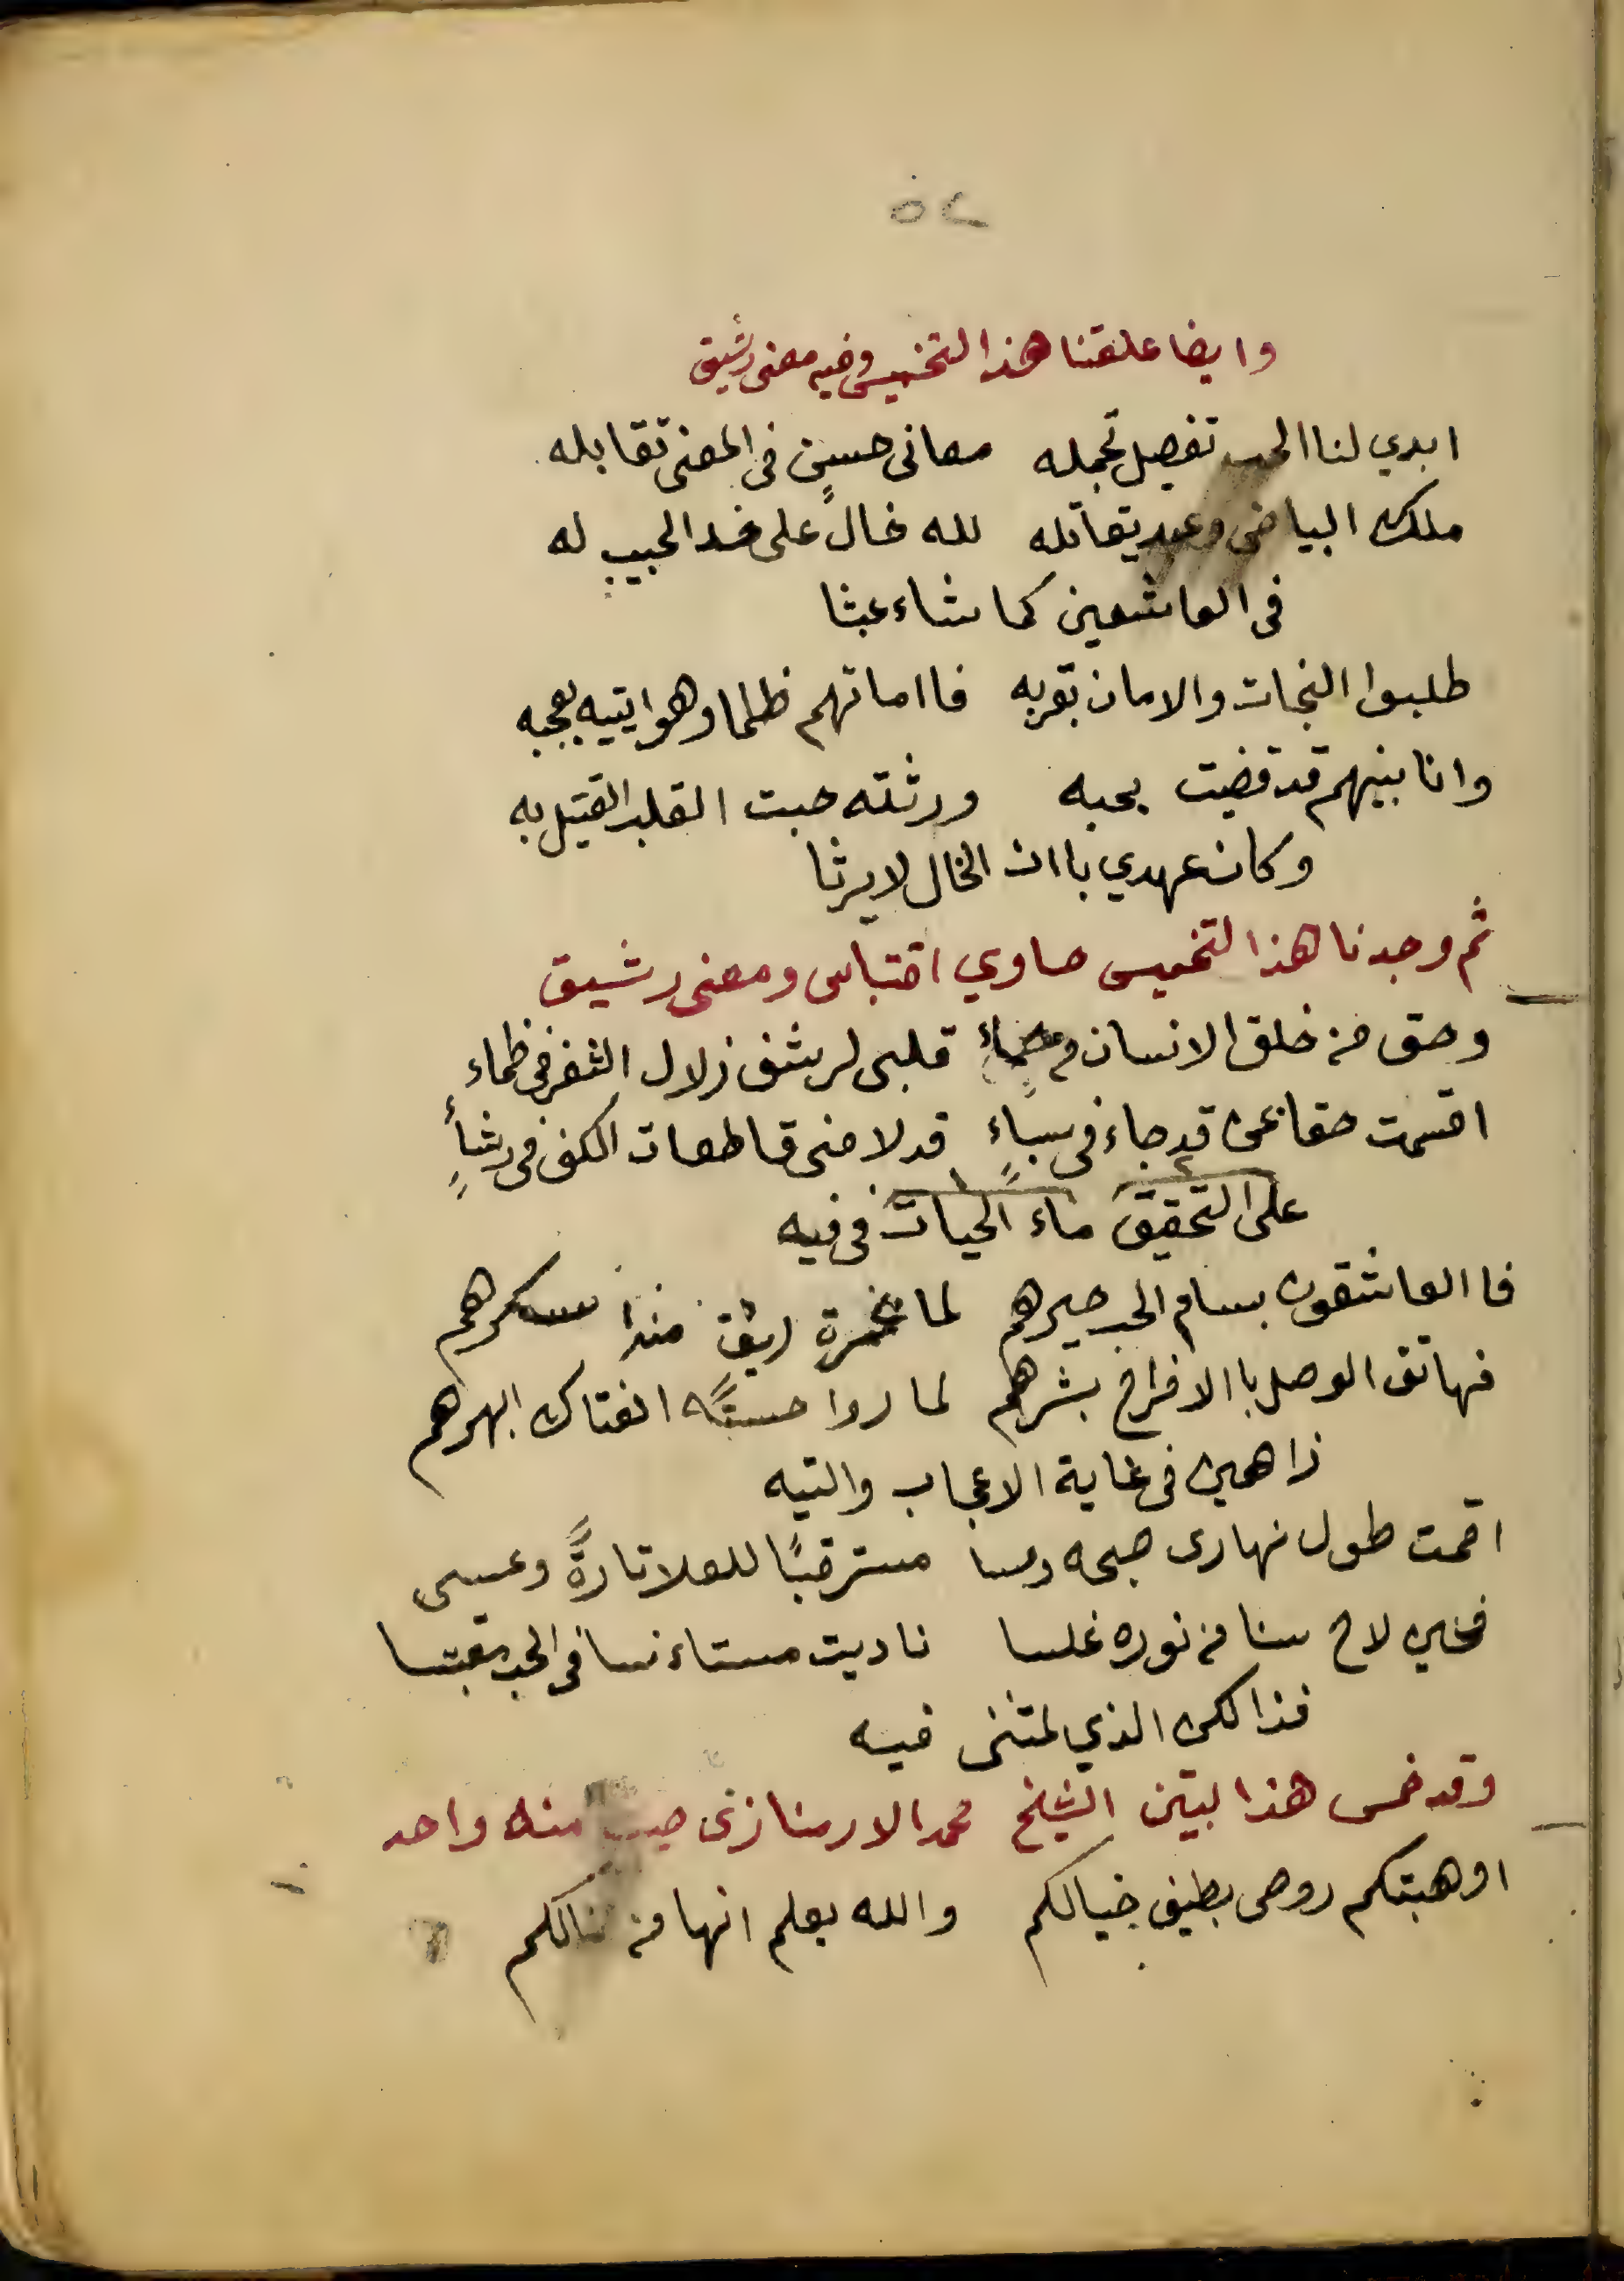 ٥٢
وايضا علقنا هذا التخميس وفيه معنى رشيق
ابدي لنا الحب تفصيل تجمله معانى حسنٍ فى المعنى تقابله
ملك البياض وعبد يقاتله لله خالً على خد الحبيب له
فى العاشقين كما شاء عبثا
طلبوا النجات والامان بقربه فااماتهم ظلما وهوا يتيه بعجبه
وانا بينهم قد قضيت بحبه ورثته حبت القلب القتيل به
وكان عهدي باان الخال لا يرثا
ثم وجدنا هذا لتخميس حاوي اقتباس ومعنى رشيق
وحق من خلق الانسان من قلبى لرشف زلال الثغر فى ظماء
اقسمت حقا بمن قد جاء فى سباءٍ قد لامنى قاطعات الكف فى رشأٍ
على التحقيق ماء الحيات فى فيه
فا العاشقون بسام الحب حيرهم لما بخمرة ريق منذا سكرهم
فهاتف الوصل باالافراح بشرهم لما روا حسنه الفتاك ابهرهم
زاهين فى غاية الاعجاب والتيه
اقمت طول نهارى صبحه ومسا مسترقبًا للعلا تارةً وعسى
فحين لاح سنا من نوره غلسا ناديت مستاءنسا فى الحب مقتبسا
فذالكن الذي لمتننى فيه
وقد خمس هذا لبتين الشيخ محمد الارمنازى منه واحد
اوهبتكم روحى بطيف خيالكم والله يعلم انها من